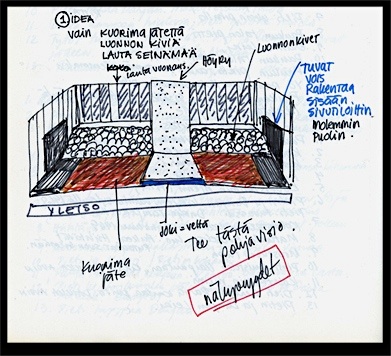 ① IDEA
vain KUORIMAJÄTETTÄ
LUONNON KIVIÄ
LAUTA SEINÄMÄÄ
lauta vuoraus.
HÖYRY
Luonnonkivet
TUVAT
VOIS
RAKENTAA
SISÄÄN
SIVUTILOIHIN.
MOLEMMIN
PUOLIN.
YLEISÖ
JOKI = vettä
Tee tästä
pohja visio.
Kuorima
jäte